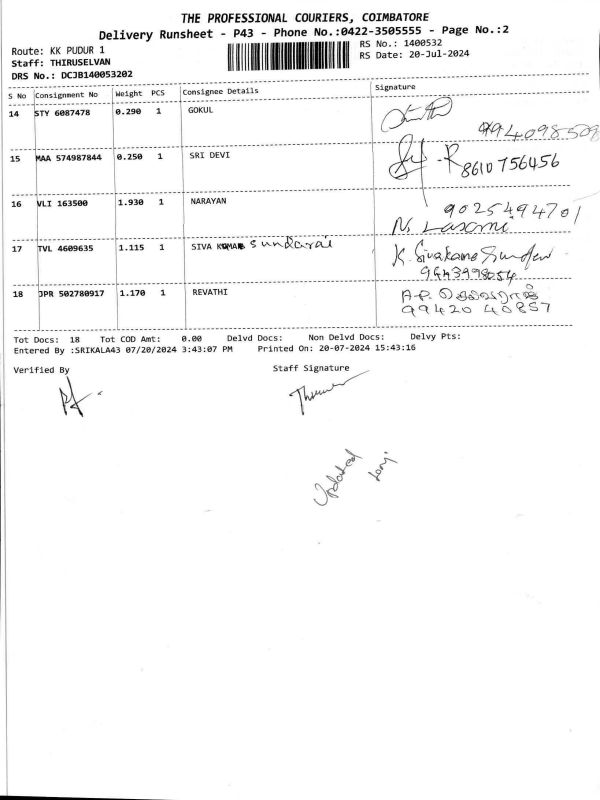 THE PROFESSIONAL COURIERS, COIMBATORE
Delivery Runsheet - P43 - Phone No.:0422-3505555 - Page No.:2
Route: KK PUDUR 1
RS No.: 1400532
Staff: THIRUSELVAN
RS Date: 20-Jul-2024
DRS No.: DCJB140053202
S No Consignment No Weight PCS Consignee Details Signature
14 STY 6087478 0.290 1 GOKUL
994098508
15 MAA 574987844 0.250 1 SRI DEVI
8610756456
16 VLI 163500 1.930 1 NARAYAN 9025494701
N. Laxmi
17 TVL 4609635 1.115 1 SIVA KUMAR Sundarai K. Sivakama Sundari
18 JPR 502780917 1.170 1 REVATHI A.P.
99420 40857
Tot Docs: 18 Tot COD Amt: 0.00 Delvd Docs: Non Delvd Docs: Delvy Pts:
Entered By :SRIKALA43 07/20/2024 3:43:07 PM Printed On: 20-07-2024 15:43:16
Verified By Staff Signature
Updated